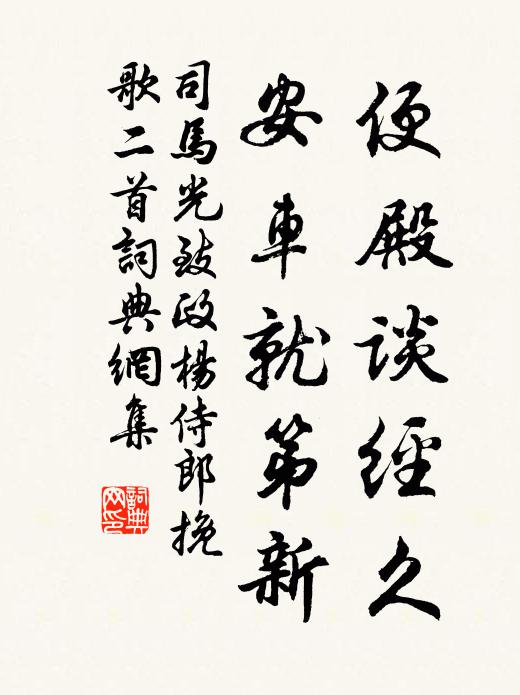 便殿談經久
安車就第新
司馬光致政楊侍郎挽
歌二首詞典網集
詞典
网印